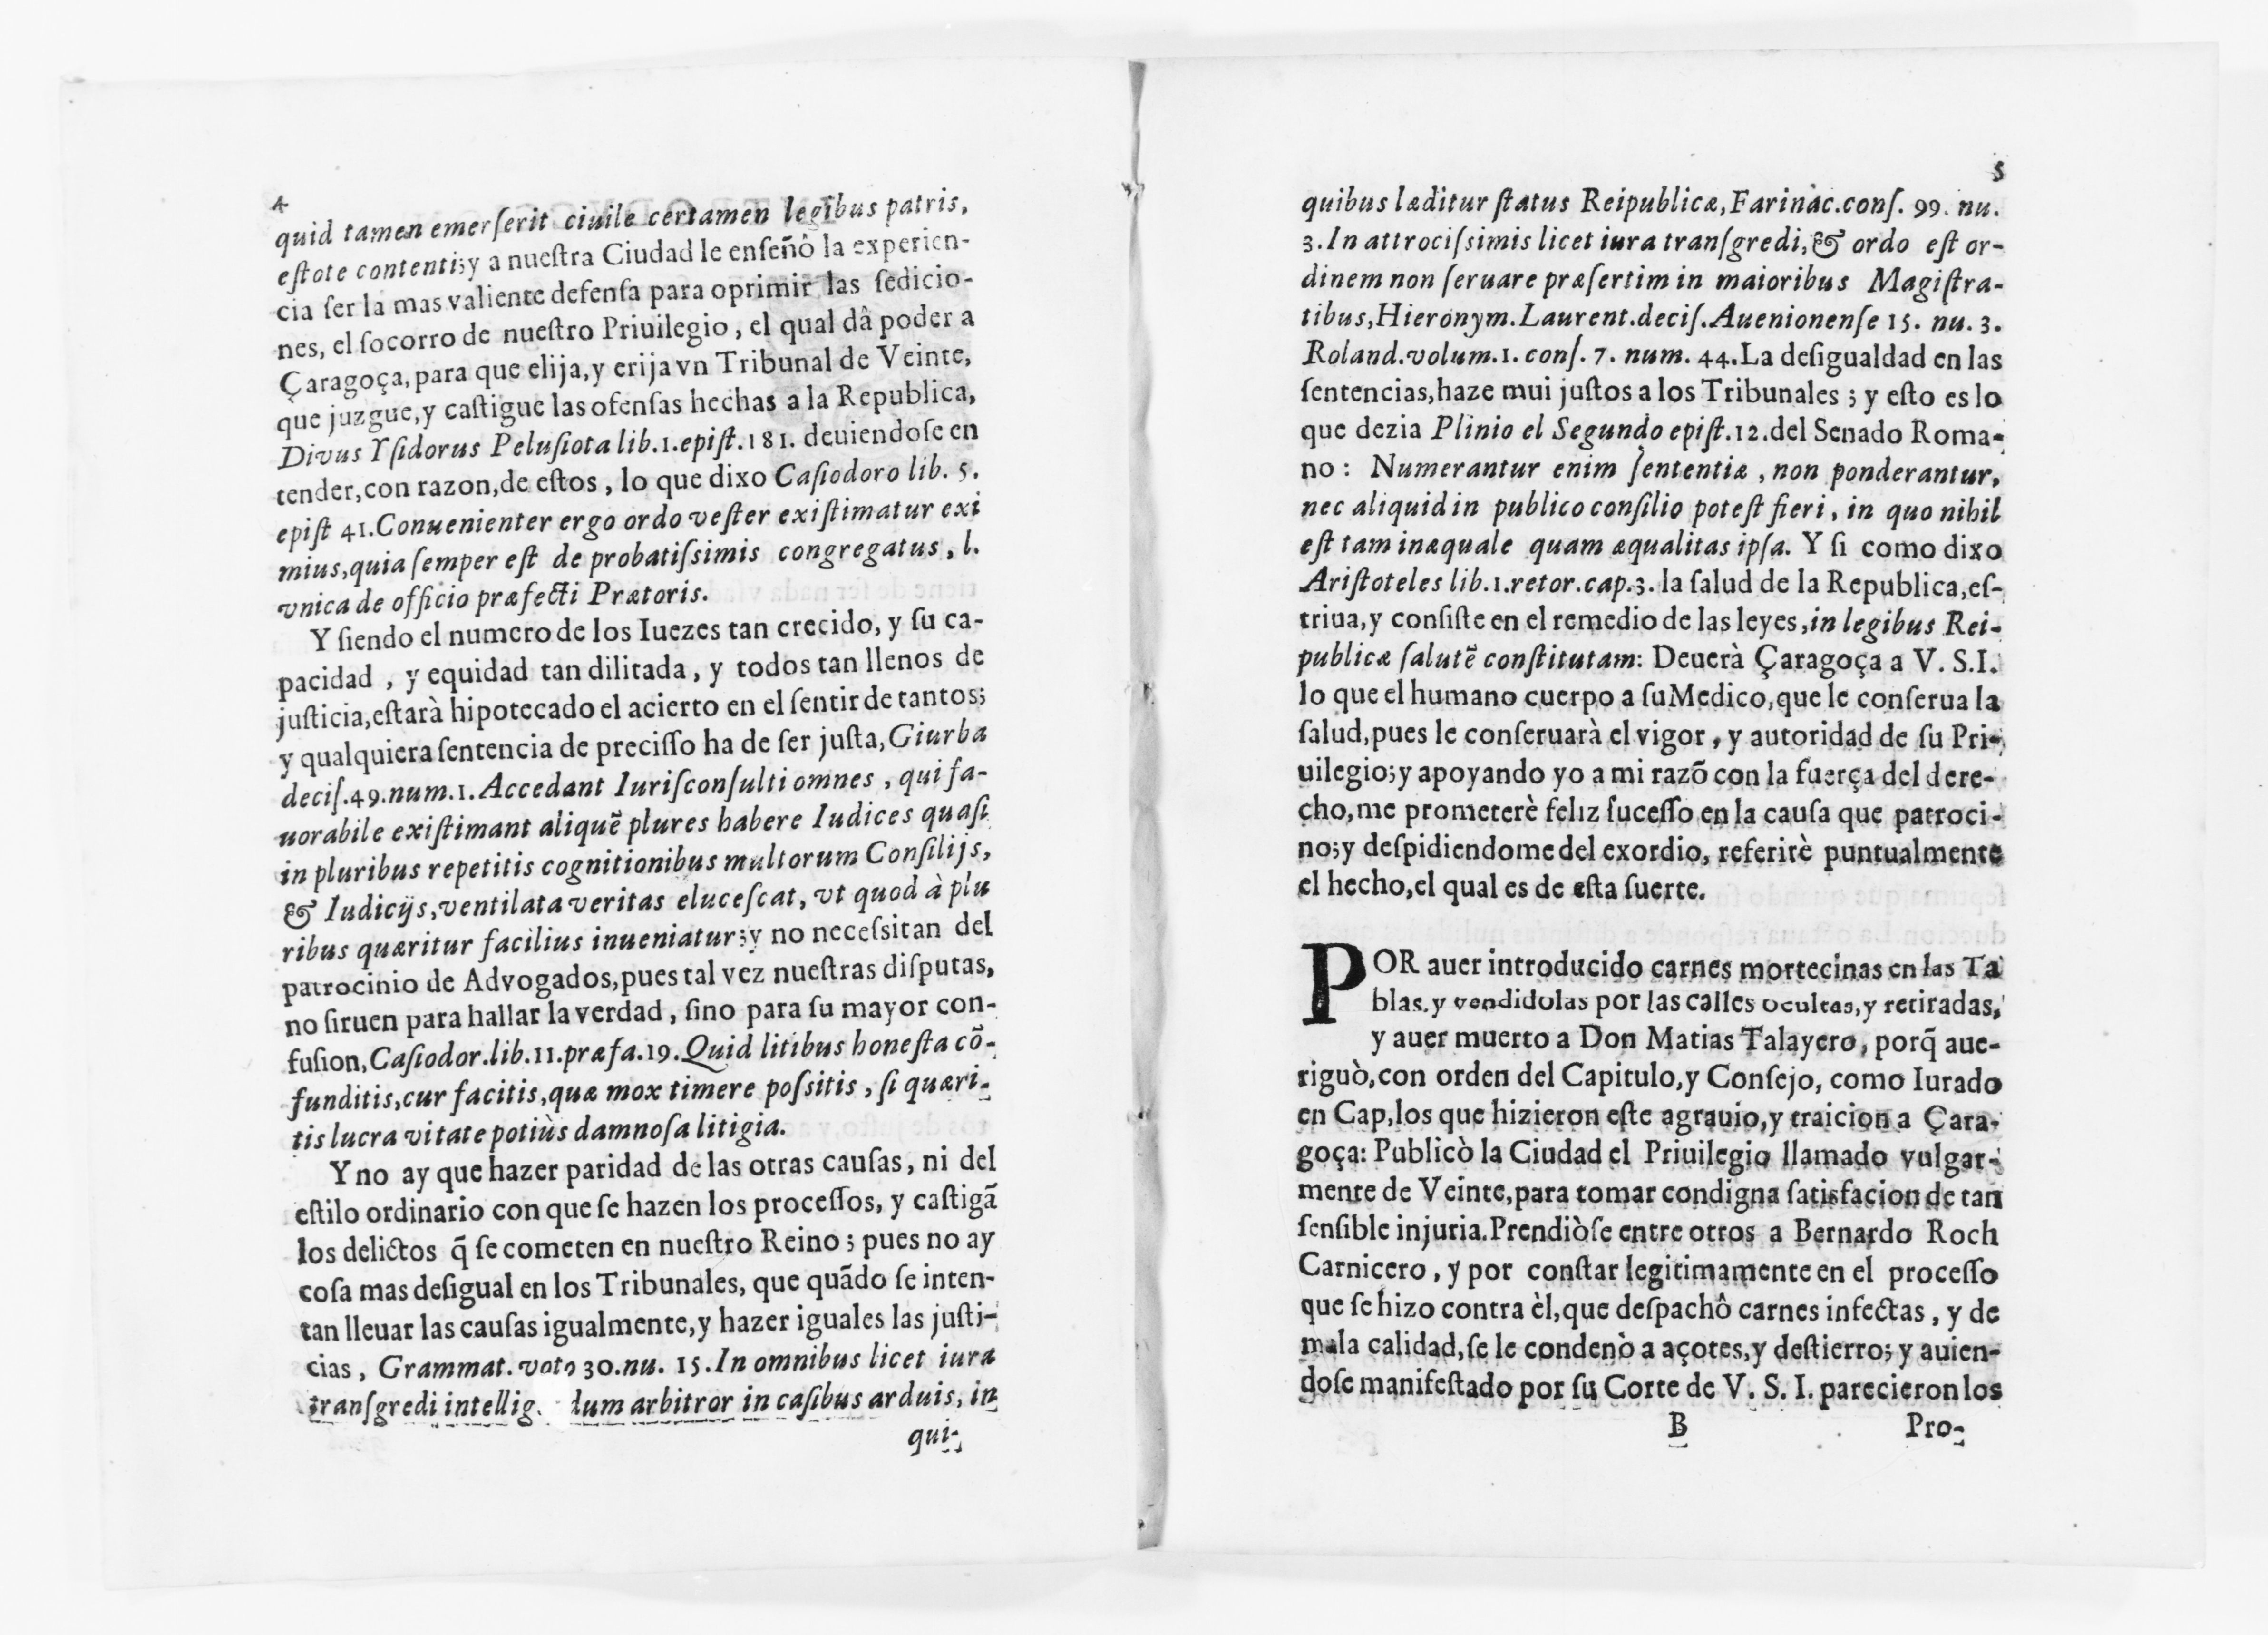 4
quid tamen emerſerit ciuile certamen legibus patris,
eſtote contenti;y a nueſtra Ciudad le enſeñò la experien-
cia ſer la mas valiente defenſa para oprimir las ſedicio-
nes, el ſocorro de nueſtro Priuilegio, el qual dà poder a
Çaragoça, para que elija,y erija vn Tribunal de Veinte,
que juzgue,y caſtigue las ofenſas hechas a la Republica,
Divus Yſidorus Peluſiota lib.1.epiſt.181. deuiendoſe en
tender,con razon,de eſtos, lo que dixo Caſiodoro lib. 5.
epiſt 41.Conuenienter ergo ordo veſter exiſtimatur exi
mius,quia ſemper eſt de probatiſsimis congregatus, l.
vnica de officio præfecti Prætoris.
Y ſiendo el numero de los Iuezes tan crecido, y ſu ca-
pacidad, y equidad tan dilitada, y todos tan llenos de
juſticia,eſtarà hipotecado el acierto en el ſentir de tantos;
y qualquiera ſentencia de preciſſo ha de ſer juſta, Giurba
deciſ.49.num.1.Accedant Iuriſconſulti omnes, qui fa-
uorabile exiſtimant aliquẽ plures habere Iudices quaſi
in pluribus repetitis cognitionibus multorum Conſilijs,
& Iudicijs,ventilata veritas eluceſcat, vt quod à plu
ribus quæritur facilius inueniatur;y no neceſsitan del
patrocinio de Advogados,pues tal vez nueſtras diſputas,
no ſiruen para hallar la verdad, ſino para ſu mayor con-
fuſion, Caſiodor.lib.11.præfa.19.Quid litibus honeſta cõ-
funditis,cur facitis,quæ mox timere poſsitis, ſi quæri-
tis lucra vitate potiùs damnoſa litigia.
Y no ay que hazer paridad de las otras cauſas, ni del
eſtilo ordinario con que ſe hazen los proceſſos, y caſtigã
los delictos q̃ ſe cometen en nueſtro Reino; pues no ay
coſa mas deſigual en los Tribunales, que quãdo ſe inten-
tan lleuar las cauſas igualmente,y hazer iguales las juſti-
cias, Grammat. voto 30.nu. 15.In omnibus licet iura
tranſgredi intellig dum arbitror in caſibus arduis, in
qui-
5
quibus læditur ſtatus Reipublicæ, Farinàc.conſ. 99. nu.
3.In attrociſsimis licet iura tranſgredi, & ordo eſt or-
dinem non ſeruare præſertim in maioribus Magiſtra-
tibus,Hieronym.Laurent.deciſ.Auenionenſe 15. nu. 3.
Roland.volum.1. conſ. 7. num. 44.La deſigualdad en las
ſentencias,haze mui juſtos a los Tribunales; y eſto es lo
que dezia Plinio el Segundo epiſt.12.del Senado Roma-
no: Numerantur enim ſententiæ, non ponderantur,
nec aliquid in publico conſilio poteſt fieri, in quo nihil
eſt tam inæquale quam æqualitas ipſa. Y ſi como dixo
Ariſtoteles lib.1.retor.cap.3. la ſalud de la Republica,eſ-
triua,y conſiſte en el remedio de las leyes,in legibus Rei-
publicæ ſalutẽ conſtitutam: Deuerà Çaragoça a V. S.I.
lo que el humano cuerpo a ſu Medico,que le conſerua la
ſalud,pues le conſeruarà el vigor, y autoridad de ſu Pri-
uilegio;y apoyando yo a mi razõ con la fuerça del dere-
cho,me prometerè feliz ſuceſſo en la cauſa que patroci-
no;y deſpidiendome del exordio, referirè puntualmente
el hecho,el qual es de eſta ſuerte.
POR auer introducido carnes mortecinas en las Ta
blas,y vendidolas por las calles ocultas,y retiradas,
y auer muerto a Don Matias Talayero, porq̃ aue-
riguò,con orden del Capitulo,y Conſejo, como Iurado
en Cap,los que hizieron eſte agrauio,y traicion a Çara-
goça: Publicò la Ciudad el Priuilegio llamado vulgar-
mente de Veinte,para tomar condigna ſatisfacion de tan
ſenſible injuria.Prendiòſe entre otros a Bernardo Roch
Carnicero, y por conſtar legitimamente en el proceſſo
que ſe hizo contra èl,que deſpachô carnes infectas, y de
mala calidad,ſe le condenò a açotes,y deſtierro; y auien-
doſe manifeſtado por ſu Corte de V. S. I. parecieron los
B
Pro-